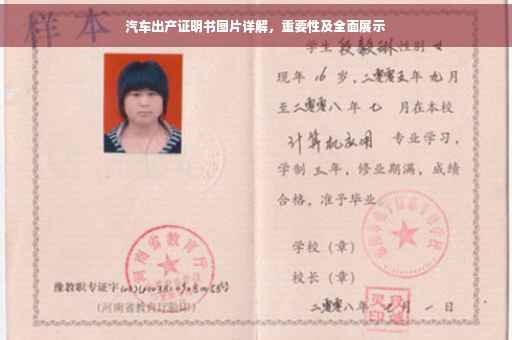 汽车出产证明书图片详解，重要性及全面展示
样本
学生段毅琳性别女
现年16岁，二零零五年九月
至二零零八年七 月在本校
计算机应用 专业学习，
学制三年，修业期满，成绩
合格，准予毕业
学校（章）
校长（章）
二零零八年七月一日
河南省教育厅
豫教职专证字
（河南省教育厅验印）